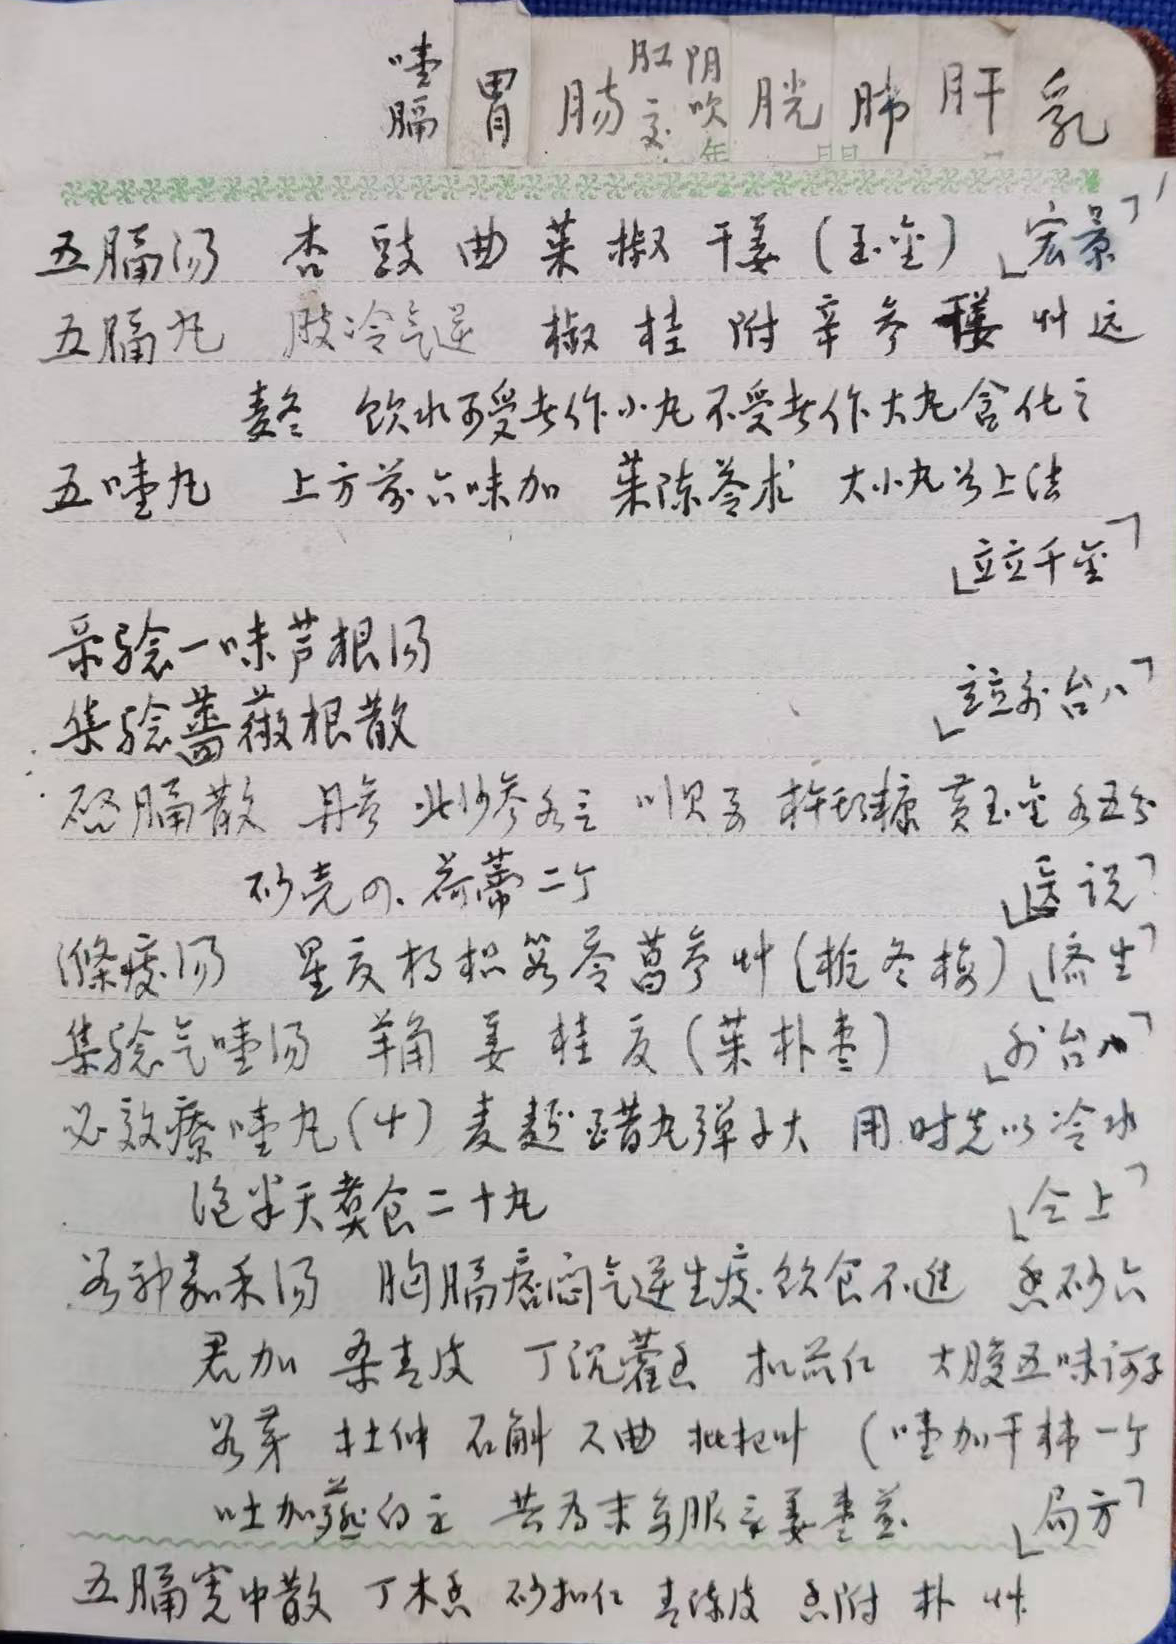 噎膈 胃 肠 肛交 阴吹 胱 肺 肝 乳
五膈汤 杏 豉 曲 茱 椒 干姜 (玉金) 「宏景」
五膈丸 肢冷气逆 椒 桂 附 辛 参 姜 艹 远
麦冬 饮水可受者作小丸不受者作大丸含化之
五噎丸 上方前六味加 茱陈苓术 大小丸如上法
「立立千金」
采验一味芦根汤
集验蔷薇根散 「立立外台八」
启膈散 丹参 北沙参各三 川贝 杵头糠 黄玉金各五分
砂壳四、荷蒂二个 「医说」
涤痰汤 星夏 枳 苓菖参艹 「济生」
集验气噎汤 羊角 姜 桂 夏 (茱 朴 枣) 「外台八」
必效疗噎丸 麦 醋丸弹子大 用时先以冷水
泡半天 食二十丸 「仝上」
谷神嘉禾汤 胸膈痞闷气逆生痰饮食不进 香砂六
君加 桑青皮 丁沉藿 扣苡仁 大腹五味诃子
谷芽 杜仲 石斛 曲 枇杷叶 (噎加干柿一个
吐加薤白三 共为末 服 姜枣 「局方」
五膈宽中散 丁木香 砂扣仁 青陈皮 香附 朴 艹